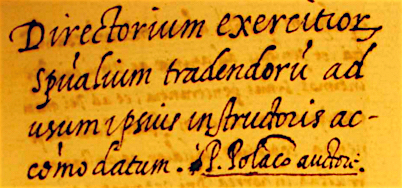 Directorium exercitior
spũalium tradendorũ ad
usum ipsius instructoris ac-
cõmodatum. P. Polãco auctore.